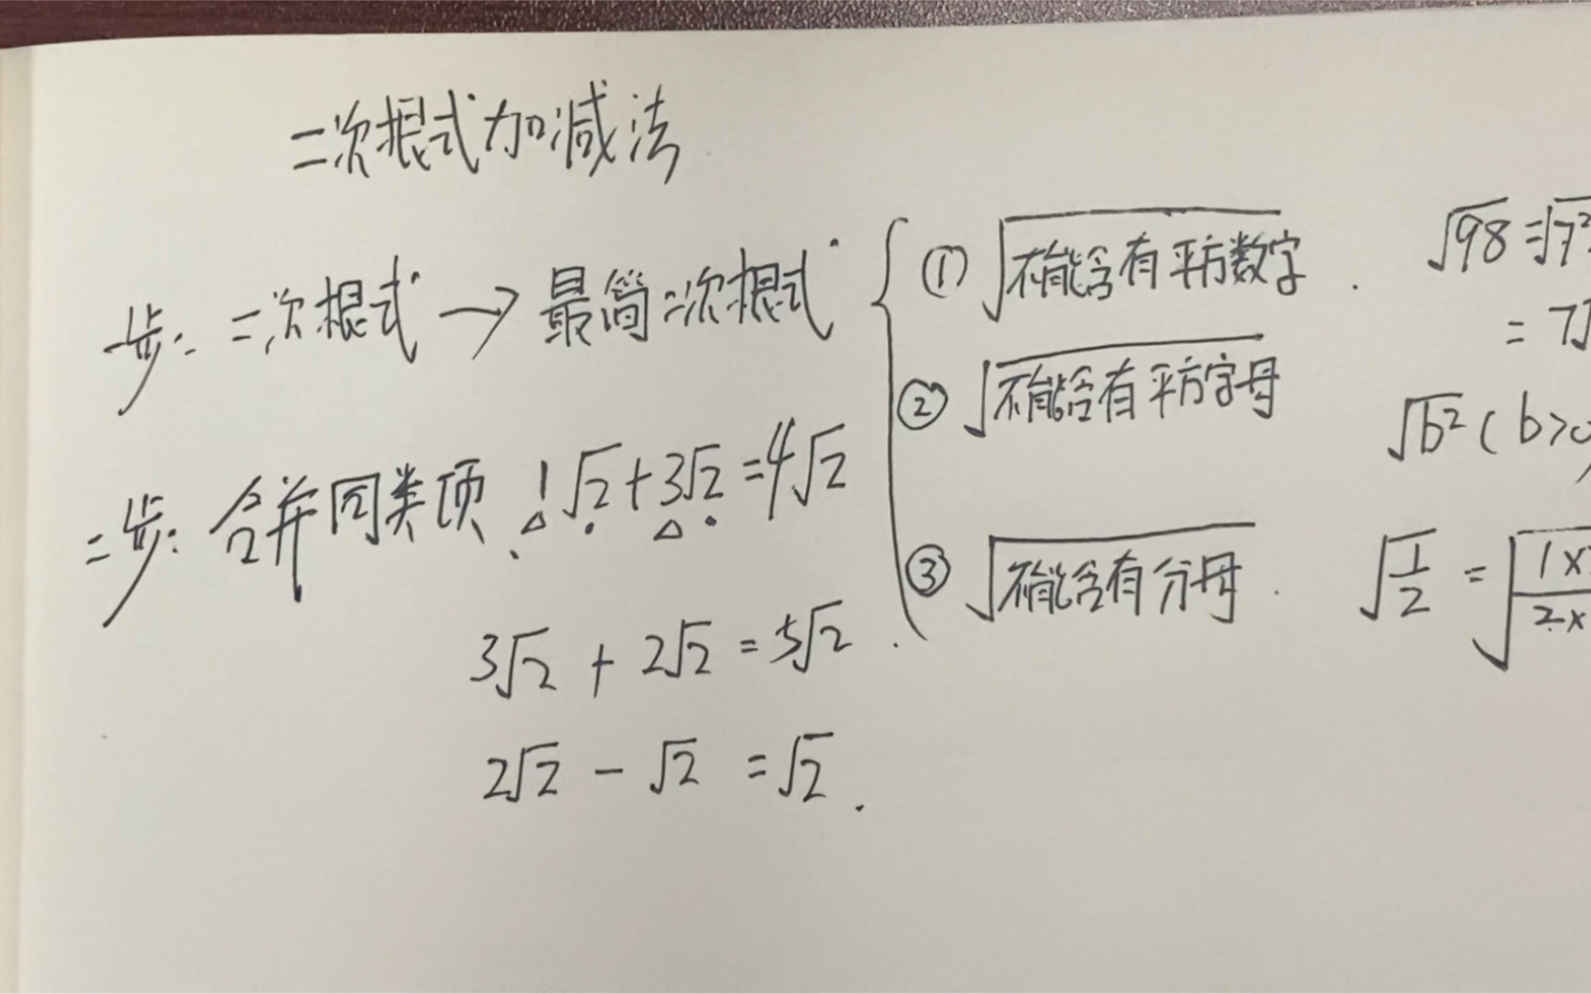 二次根式加减法
一步: 二次根式 → 最简二次根式
① √不能含有平方数字. √98 = √7²
= 7√
② √不能含有平方字母 √b² (b>0
③ √不能含有分母. √1/2 = √1×/2×
二步: 合并同类项. 1√2 + 3√2 = 4√2
3√2 + 2√2 = 5√2.
2√2 - √2 = √2.